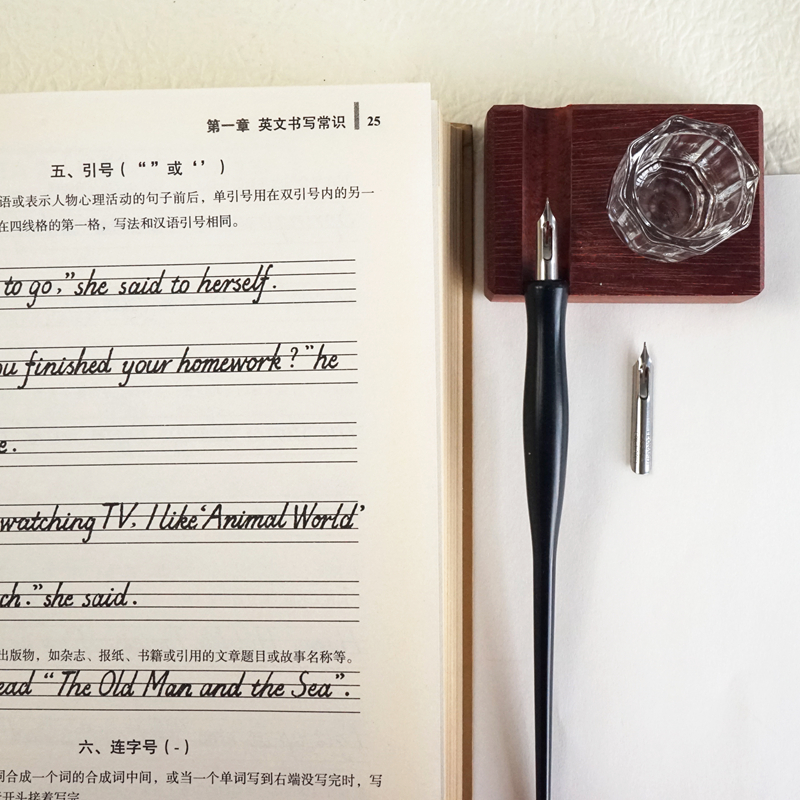 第一章 英文书写常识 25
五、引号（“”或‘’）
语或表示人物心理活动的句子前后，单引号用在双引号内的另一
在四线格的第一格，写法和汉语引号相同。
to go,”she said to herself.
ou finished your homework?”he
e.
watching TV, I like‘Animal World’
ch.”she said.
出版物，如杂志、报纸、书籍或引用的文章题目或故事名称等。
ead “The Old Man and the Sea”.
六、连字号（-）
合成一个词的合成词中间，或当一个单词写到右端没写完时，写
开头接着写完